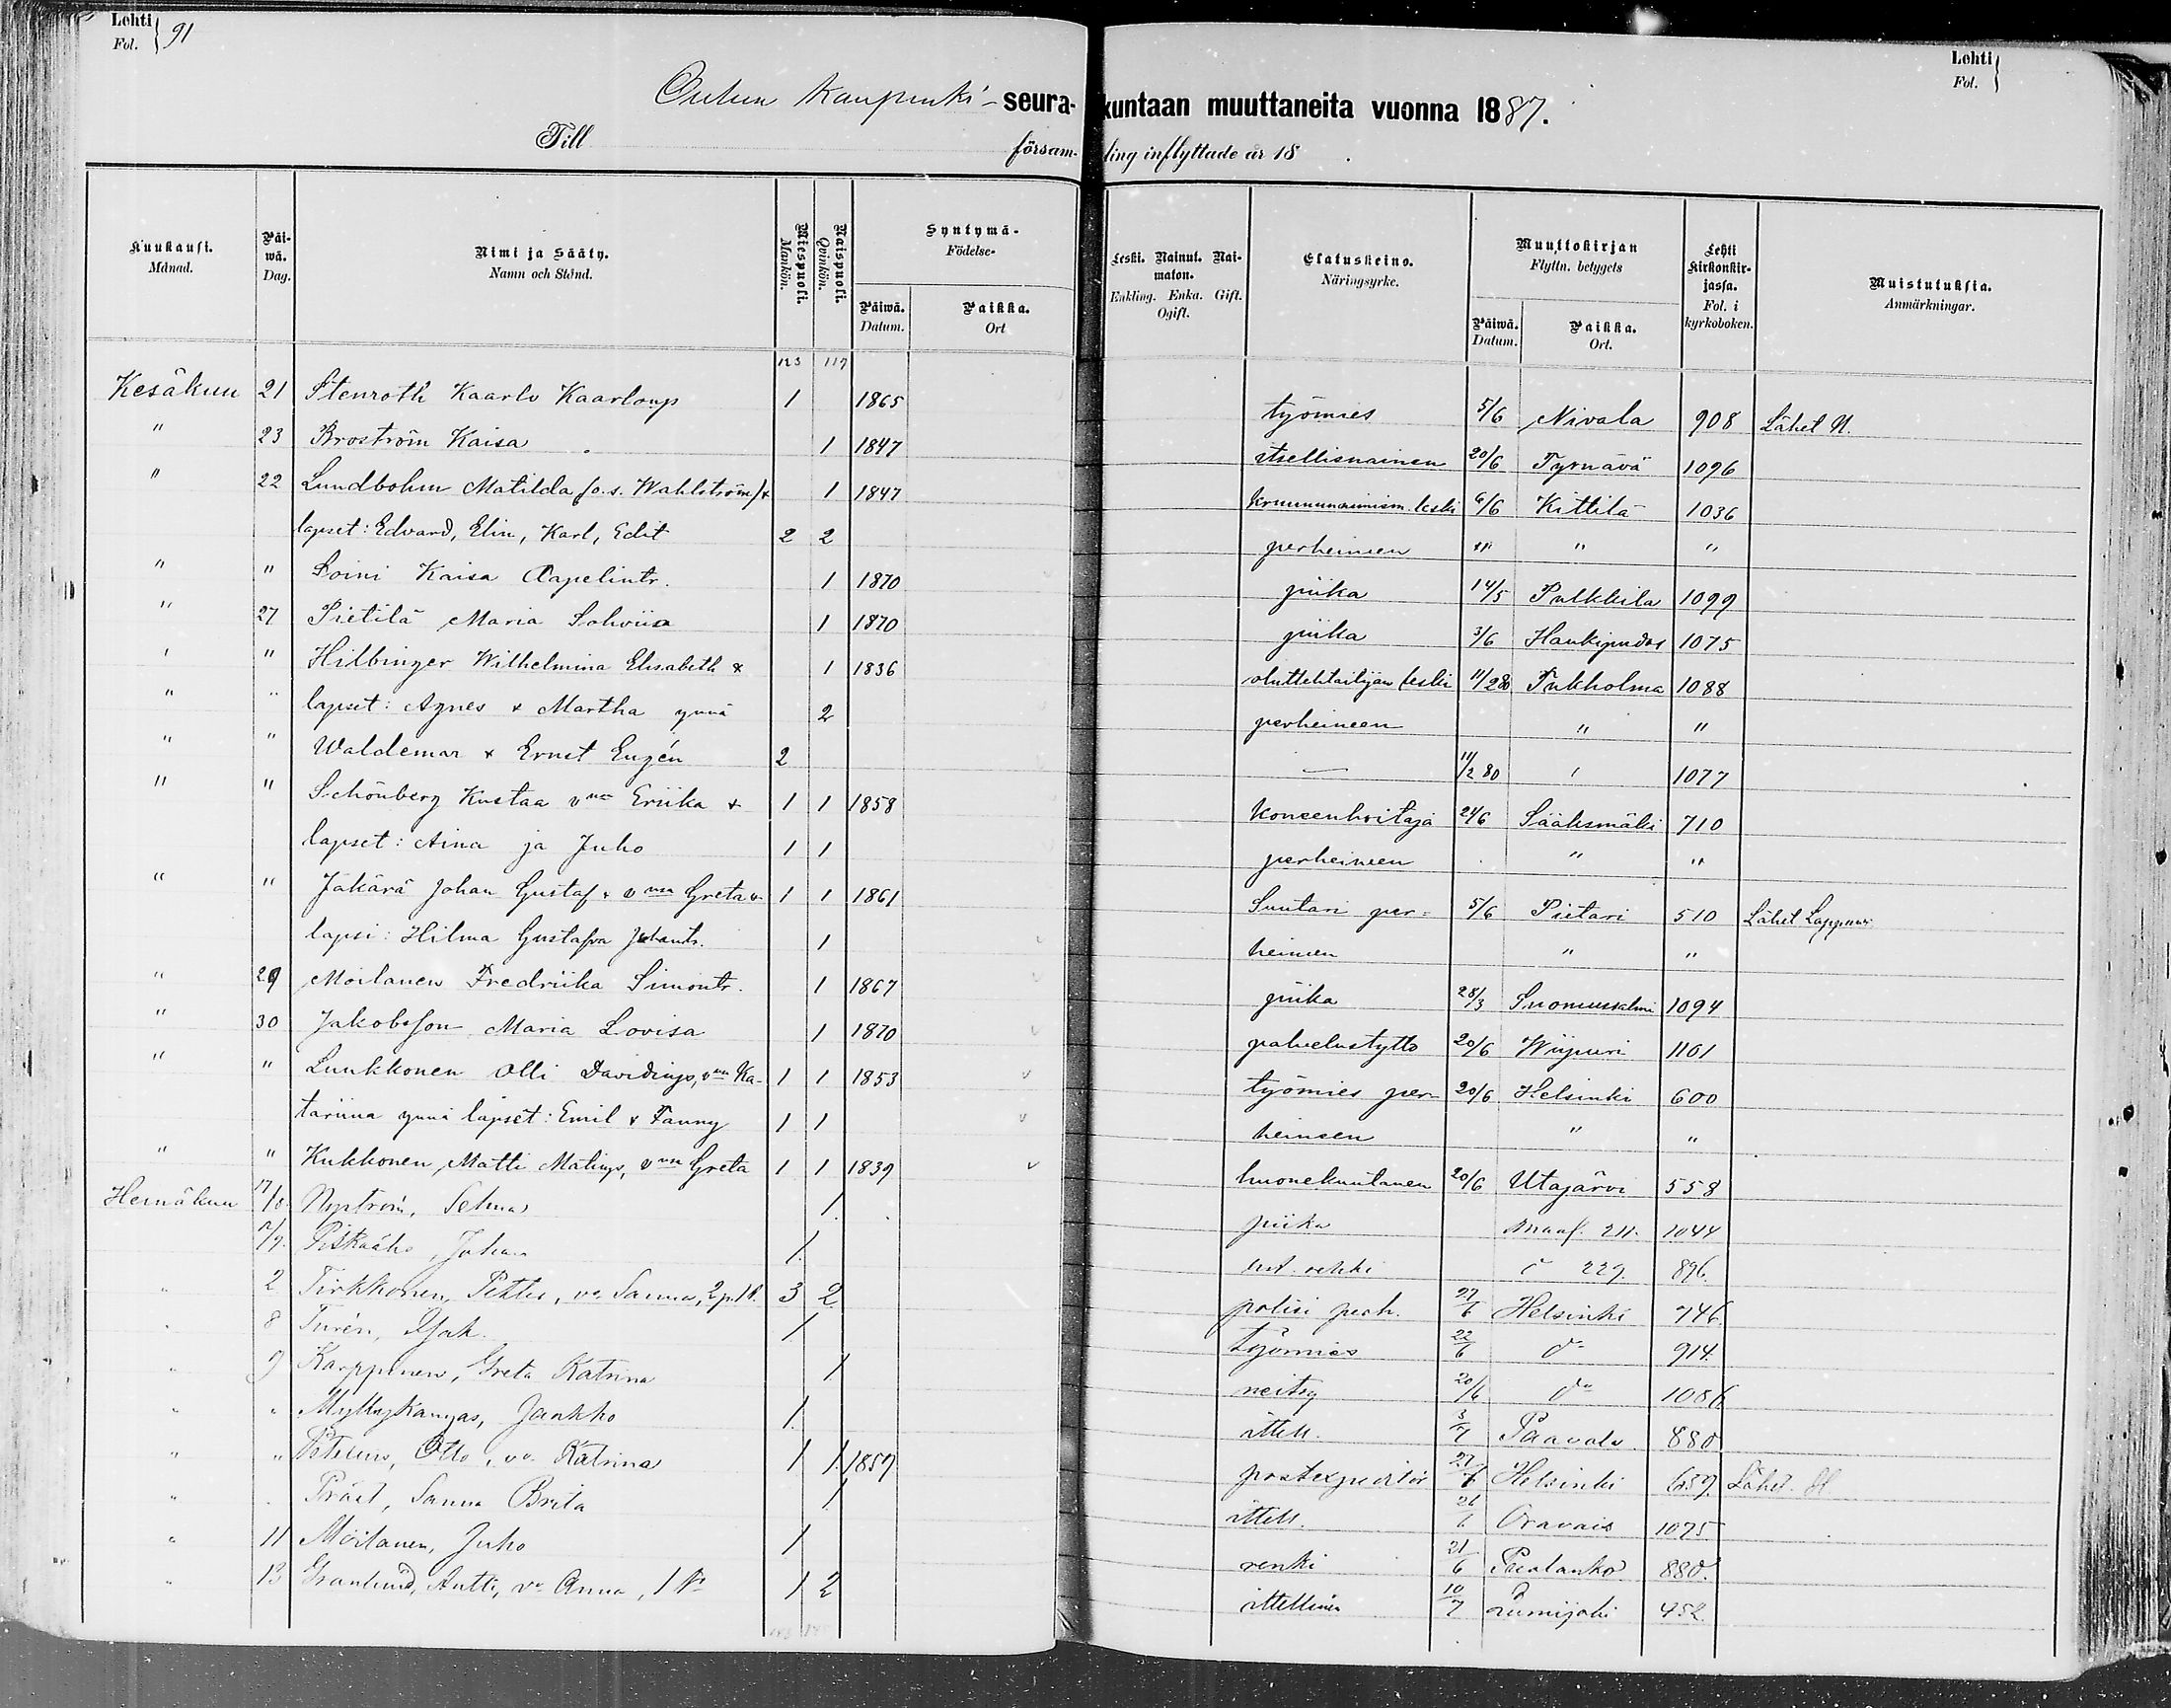 Lehti Fol. } 91
Lehti Fol. }
Oulun kaupunki-seurakuntaan muuttaneita vuonna 1887.
Till församling inflyttade år 18 .
Kuukausi. Månad. Päiwä. Dag. Nimi ja Sääty. Namn och Stånd. Miespuoli. Mankön. Naispuoli. Qvinkön. Syntymä- Födelse- Päiwä. Datum. Paikka. Ort Leski. Nainut. Naimaton. Enkling. Enka. Gift. Ogift. Elatuskeino. Näringsyrke. Muuttokirjan Flyttn. betygets Päiwä. Datum. Paikka. Ort. Lehti Kirkonkirjassa. Fol. i kyrkoboken. Muistutuksia. Anmärkningar.
123 117
Kesäkuu 21 Stenroth Kaarlo Kaarlonp 1 1865 työmies 5/6 Nivala 908 Lähet N.
" 23 Broström Kaisa 1 1847 itsellisnainen 20/6 Tyrnävä 1096
" 22 Lundbohm Matilda (o.s. Wahlström) & 1 1847 kruununnimism. leski 6/6 Kittilä 1036
lapset: Edvard, Elin, Karl, Edit 2 2 perheineen " " "
" " Soini Kaisa Aapelintr. 1 1870 piika 14/5 Pulkkila 1099
" 27 Pietilä Maria Sohviia 1 1870 piika 3/6 Haukipudas 1075
" " Hilbinger Wilhelmina Elisabeth & 1 1836 oluttehtailijan leski 11/2 80 Tukholma 1088
" " lapset: Agnes & Martha ynnä 2 perheineen " "
" " Waldemar & Ernst Eugén 2 — 11/2 80 " 1077
" " Schönberg Kustaa vmo Eriika & 1 1 1858 koneenhoitaja 24/6 Sääksmäki 710
lapset: Aina ja Juho 1 1 perheineen " "
" " Jäkärä Johan Gustaf & vmsa Greta & 1 1 1861 Suutari per= 5/6 Pietari 510 Lähet
lapsi: Hilma Gustafva Juhantr. 1 heineen " "
" 29 Moilanen Fredriika Simontr. 1 1867 piika 28/3 Suomussalmi 1094
" 30 Jakobsson Maria Lovisa 1 1870 palvelustyttö 20/6 Wiipuri 1101
" " Luukkonen Olli Davidinp, vmn Ka- 1 1 1853 työmies per- 20/6 Helsinki 600
tariina ynnä lapset: Emil & Fanny 1 1 heineen " "
" " Kukkonen Matti Matinp, vmn Greta 1 1 1839 huonekuntanen 20/6 Utajärvi 558
Heinäkuu 17/8 Nyström, Selma 1 piika 211. 1044
7/7. Johan 1 renki 229. 896.
" 2 Tirkkonen, Petter, vo Sanna, 2 p. 1 t. 3 2 polisi perh. 27/6 Helsinki 746.
" 8 Turén, Isak. 1 työmies 22/6 do 914.
" 9 Karppinen, Greta Katrina 1 neitsy 20/6 do 1086
" " Myllykangas, Jaakko 1 ittell. 3/7 Paavola 880
" " Petelius, Otto, vo Katrina 1 1 1857 postexpeditör 27/6 Helsinki 659. Lähet. H
" " Präst, Sanna Brita 1 ittell. Oravais 1075
" 11 Moilanen, Juho 1 renki 21/6 Puolanko 880.
" 13 Granlund, Antti, vo Anna, 1 t. 1 2 ittellinen 10/7 Lumijoki 452.